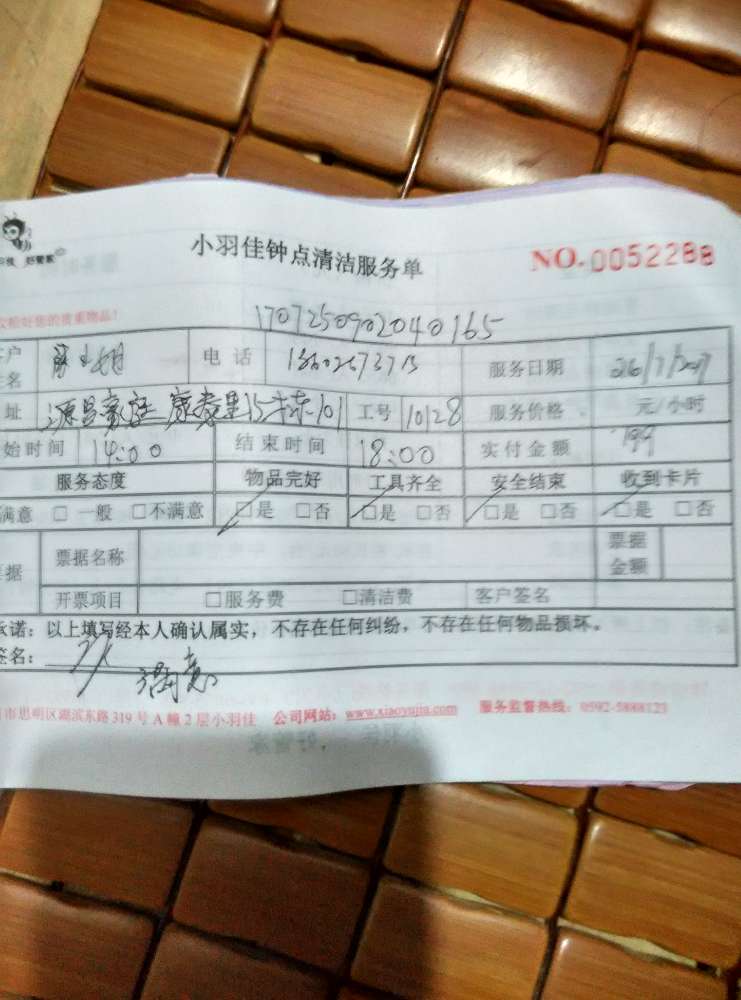 小羽佳钟点清洁服务单 NO.0052288
好管家
好您的贵重物品!
1707250902040165
电话 服务日期 26/7/2017
址 源昌豪庭 康泰里15栋101 工号 10128 服务价格 元/小时
始时间 14:00 结束时间 18:00 实付金额 199
服务态度 物品完好 工具齐全 安全结束 收到卡片
满意 □一般 □不满意 □是 □否 □是 □否 □是 □否 □是 □否
票据名称 票据金额
开票项目 □服务费 □清洁费 客户签名
承诺:以上填写经本人确认属实,不存在任何纠纷,不存在任何物品损坏。
签名: 满意
市思明区湖滨东路319号A幢2层小羽佳 公司网站:www.xiaoyujia.com 服务监督热线:0592-5888123